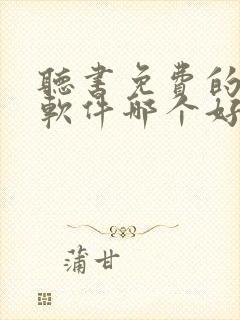 聽書免費的
軟件哪个好
蒲甘